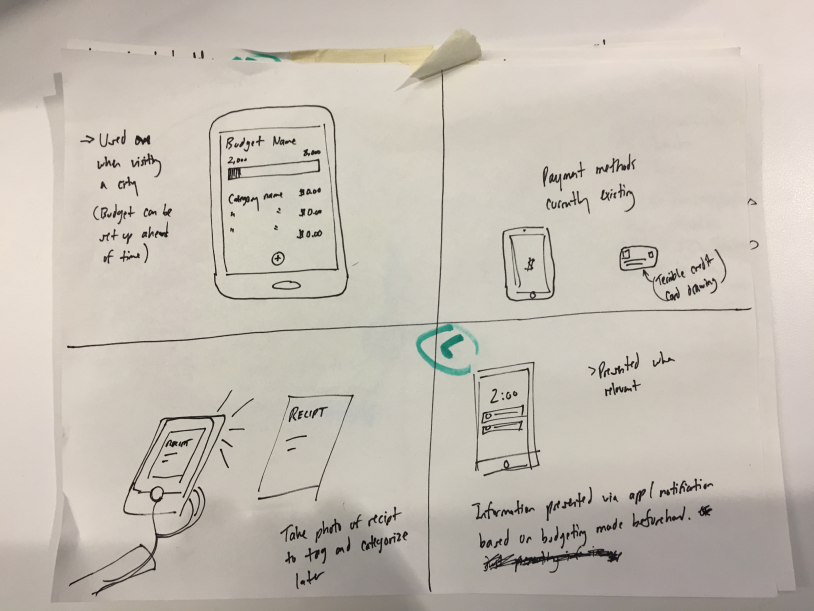 → Used
when visiting
a city
(Budget can be
set up ahead
of time)
Budget Name
2,000 3,000
Category name $0.00
" " $0.00
" " $0.00
+
Payment methods
currently existing
$
(Terrible credit
card drawing)
RECIPT
RECIPT
Take photo of recipt
to tag and categorize
later
2:00
> Presented when
relevant
Information presented via app/notification
based on budgeting made beforehand.